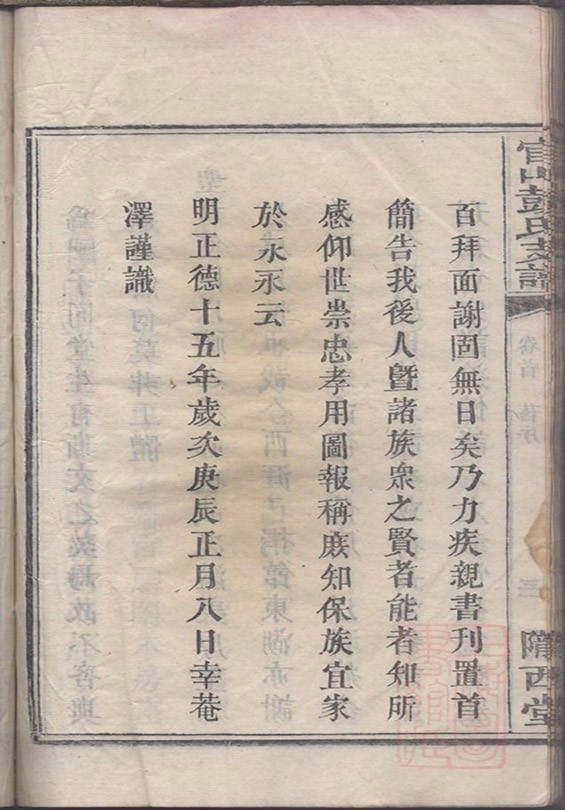 官山彭氏支譜
卷首
舊序
三
隴西堂
百拜面謝固無日矣乃力疾親書刊置首
簡告我後人暨諸族衆之賢者能者知所
感仰世崇忠孝用圖報稱庶知保族宜家
於永永云
明正德十五年歲次庚辰正月八日幸菴
澤謹識